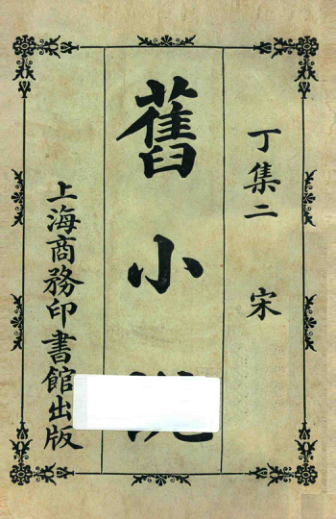 丁集二 宋
舊小
上海商務印書館出版